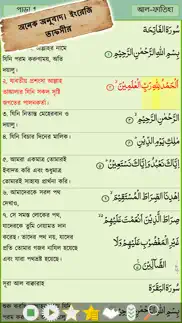 পারা ১
আল-ফাতিহা
অনেক অনুবাদ। ইংরেজি
তাফসীর
سُورَةُ الْفَاتِحَةِ
নামে
যিনি পরম করুণাময়, অতি
দয়ালু।
بِسْمِ اللَّهِ الرَّحْمَٰنِ الرَّحِيمِ
২. যাবতীয় প্রশংসা আল্লাহ
তাআলার যিনি সকল সৃষ্টি
জগতের পালনকর্তা।
الْحَمْدُ لِلَّهِ رَبِّ الْعَالَمِينَ
৩. যিনি নিতান্ত মেহেরবান ও
দয়ালু।
الرَّحْمَٰنِ الرَّحِيمِ
৪. যিনি বিচার দিনের মালিক।
مَٰلِكِ يَوْمِ الدِّينِ
৫. আমরা একমাত্র তোমারই
ইবাদত করি এবং শুধুমাত্র
তোমারই সাহায্য প্রার্থনা করি।
إِيَّاكَ نَعْبُدُ وَإِيَّاكَ نَسْتَعِينُ
৬. আমাদেরকে সরল পথ
দেখাও,
اهْدِنَا الصِّرَاطَ الْمُسْتَقِيمَ
৭. সে সমস্ত লোকের পথ,
যাদেরকে তুমি নেয়ামত দান
করেছ। তাদের পথ নয়, যাদের
প্রতি তোমার গজব নাযিল হয়েছে
এবং যারা পথভ্রষ্ট হয়েছে।
صِرَاطَ الَّذِينَ أَنْعَمْتَ عَلَيْهِمْ
غَيْرِ الْمَغْضُوبِ عَلَيْهِمْ وَلَا
الضَّالِّينَ
সূরা আল বাক্বারাহ
سُورَةُ الْبَقَرَةِ